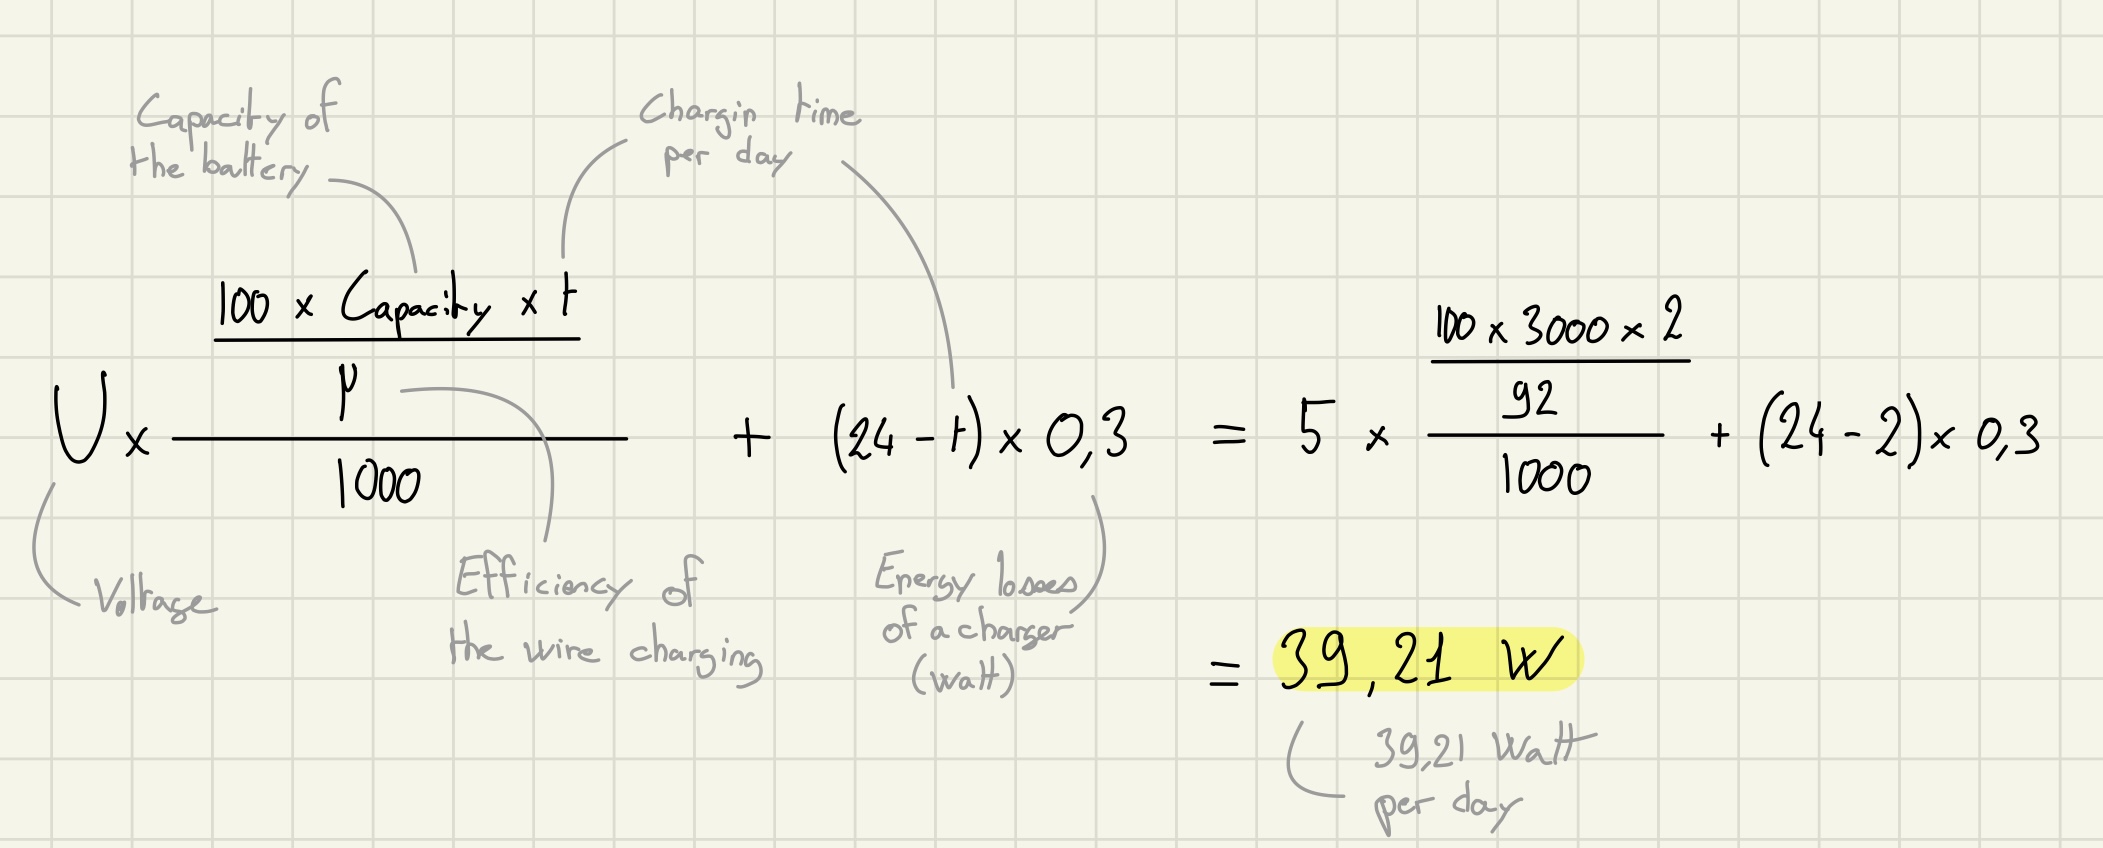 Capacity of
the battery
Chargin time
per day
100 x Capacity x t
μ
U x
1000
+ (24 - t) x 0,3
=
5 x
100 x 3000 x 2
92
1000
+ (24 - 2) x 0,3
Voltage
Efficiency of
the wire charging
Energy losses
of a charger
(watt)
= 39,21 W
39,21 Watt
per day